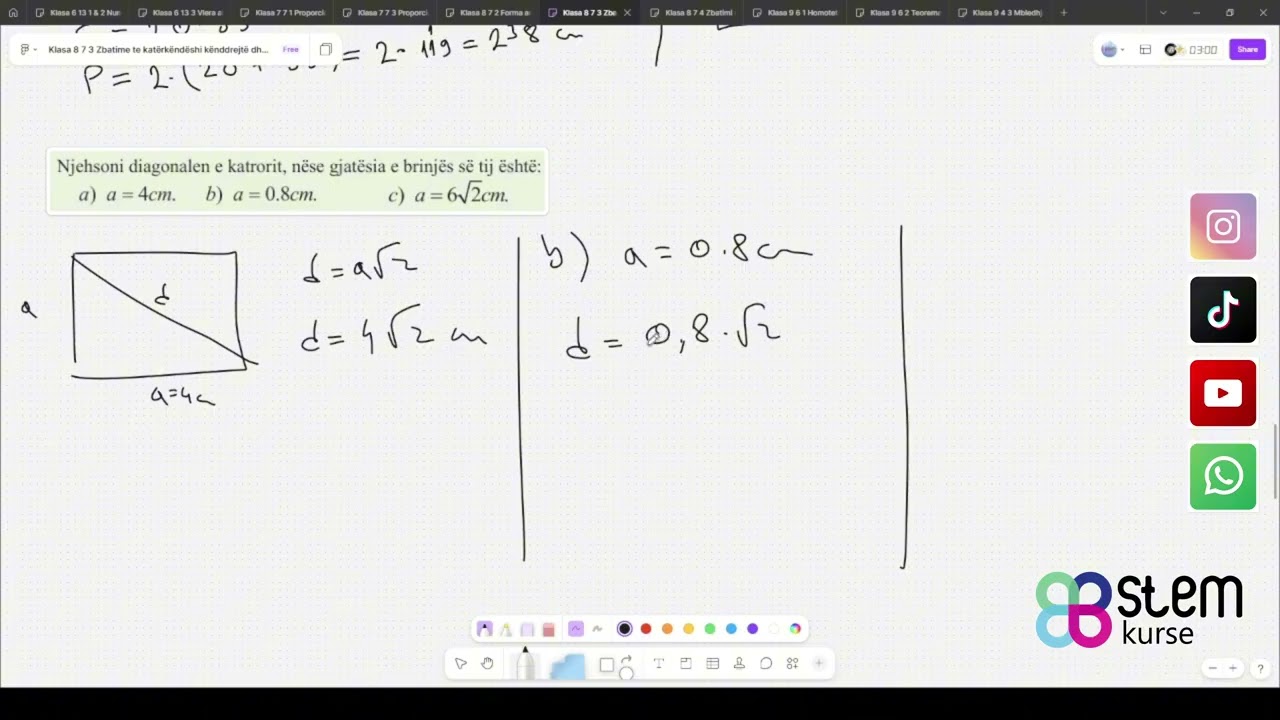 Klasa 6 13 1 & 2 Nur
Klasa 6 13 3 Vlera a
Klasa 7 7 1 Proporci
Klasa 7 7 3 Proporci
Klasa 8 7 2 Forma a
Klasa 8 7 3 Zba
Klasa 8 7 4 Zbatimi
Klasa 9 6 1 Homotet
Klasa 9 6 2 Teorema
Klasa 9 4 3 Mbledhj
Klasa 8 7 3 Zbatime te katërkëndëshi kënddrejtë dh...
Free
03:00
Share
= 2 · 119 = 238 cm
P = 2·(
Njehsoni diagonalen e katrorit, nëse gjatësia e brinjës së tij është:
a) a = 4cm. b) a = 0.8cm. c) a = 6√2cm.
a
d
a=4c
d = a√2
d = 4√2 cm
b) a = 0.8cm
d = 0,8·√2
stem
kurse